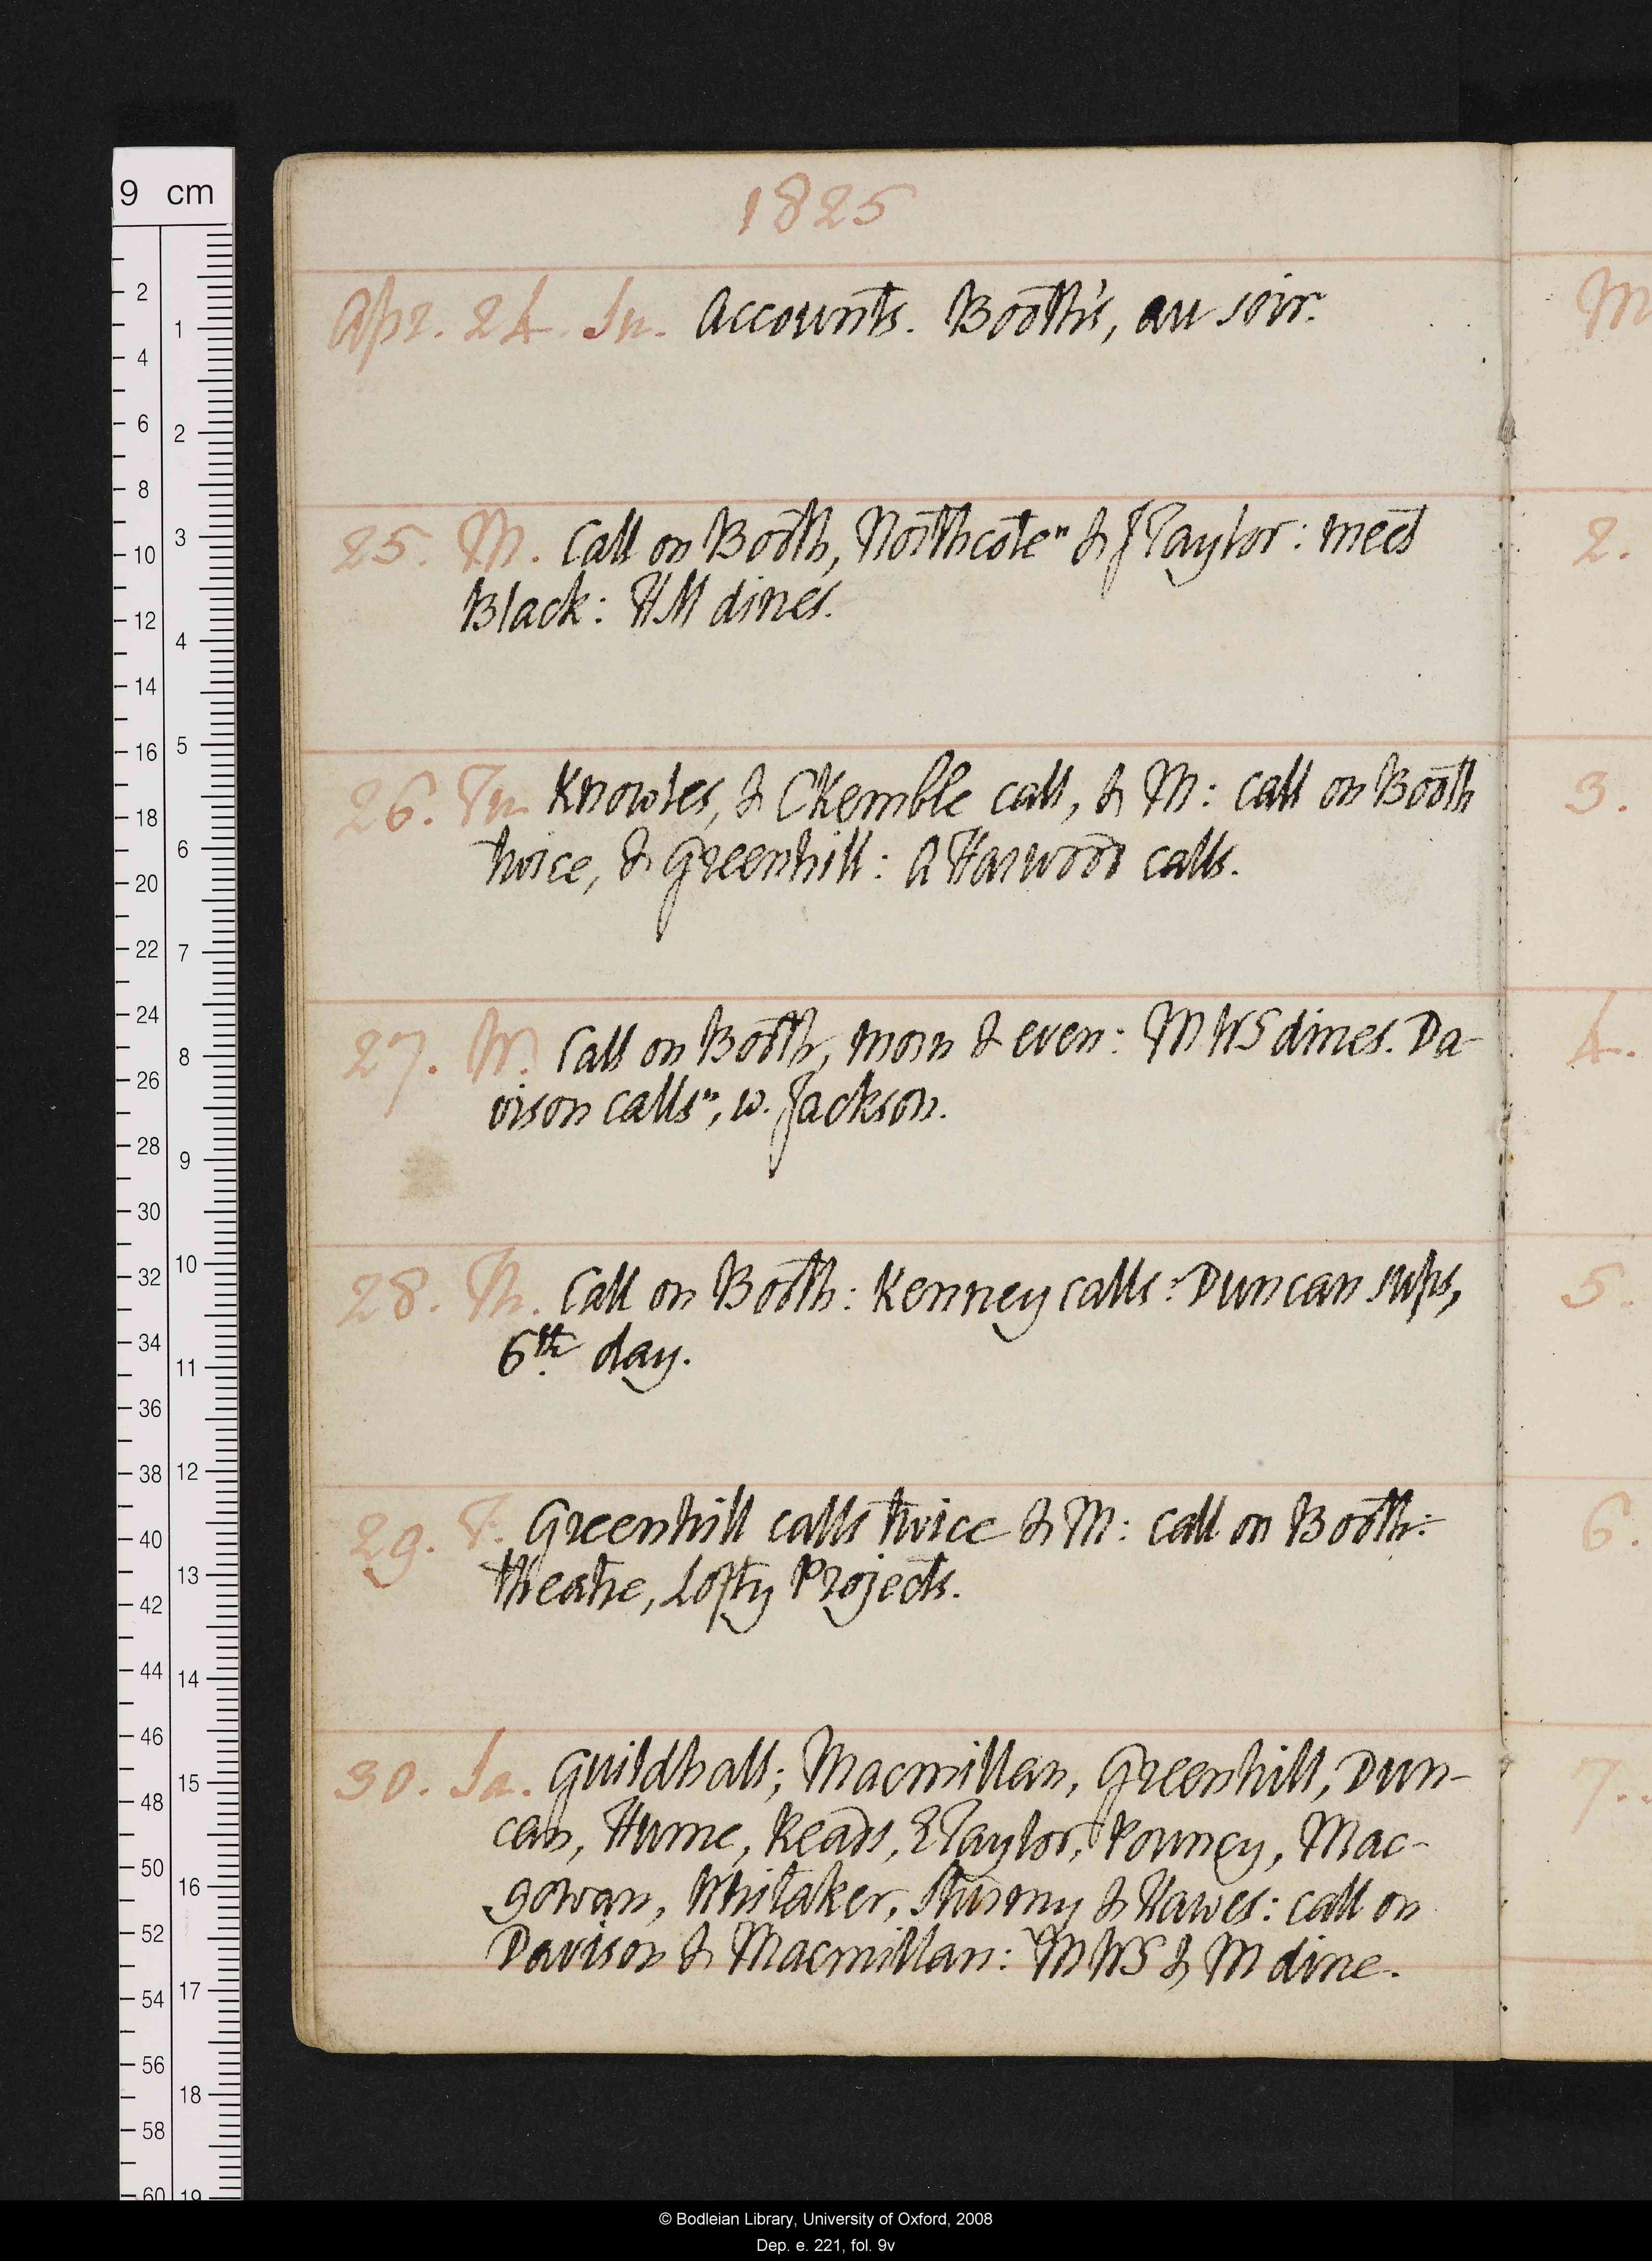 1825
Apr. 24. Su. Accounts. Booth's, au soir.
25. M. Call on Booth, Northcote" & J Taylor: meet
Black: HM dines.
26. Tu. Knowles, & C Kemble call, & M: call on Booth
twice, & Greenhill: A Harwood calls.
27. W. Call on Booth, morn & even: MWS dines. Da-
vison calls", w. Jackson.
28. Th. Call on Booth: Kenney calls: Duncan sups,
6th day.
29. F. Greenhill calls twice & M: call on Booth:
theatre, Lofty Projects.
30. Sa. Guildhall; Macmillan, Greenhill, Dun-
can, Hume, Reads, E Taylor, Pouncy, Mac-
gowan, Whitaker, & Hawes: call on
Davison & Macmillan: MWS & M dine.
M
2.
3.
4.
5.
6.
7.
9 cm
2 4 6 8 10 12 14 16 18 20 22 24 26 28 30 32 34 36 38 40 42 44 46 48 50 52 54 56 58 60
1 2 3 4 5 6 7 8 9 10 11 12 13 14 15 16 17 18 19
© Bodleian Library, University of Oxford, 2008
Dep. e. 221, fol. 9v